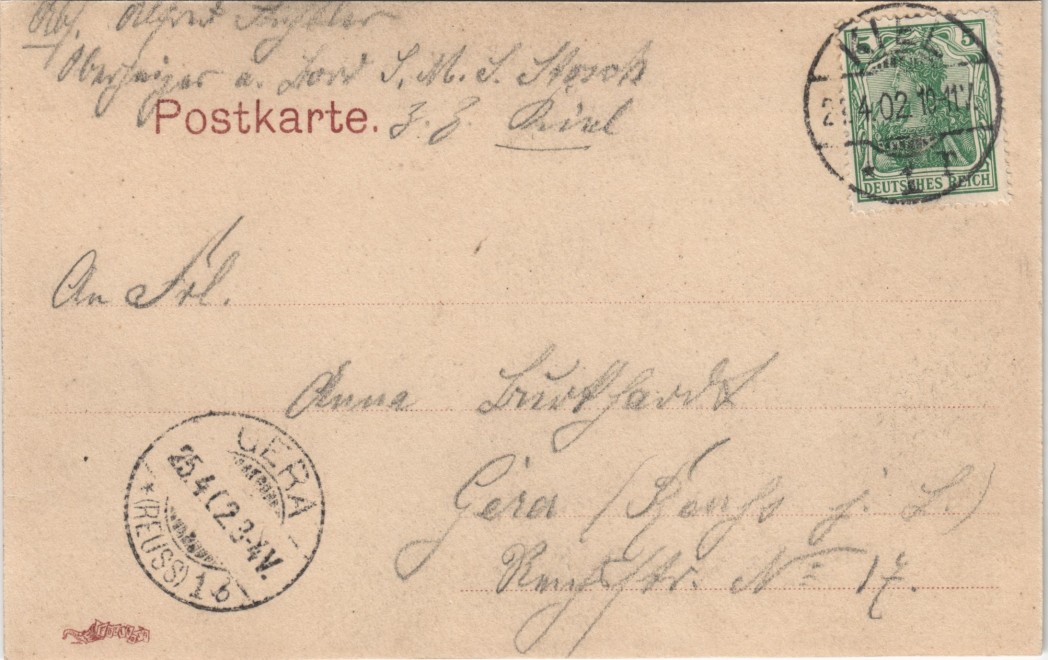 Abs. Alfred
Oberheizer a. Bord S. M. S. Stosch
Postkarte.
z. Z. Kiel
KIEL
4.02 10-11V.
* 1 r
5 5
DEUTSCHES REICH
An Frl.
Anna Burkhardt
Gera (Reuss j. L.)
str. No 17.
GERA
25.4 02 3-4V.
* (REUSS) 1 b